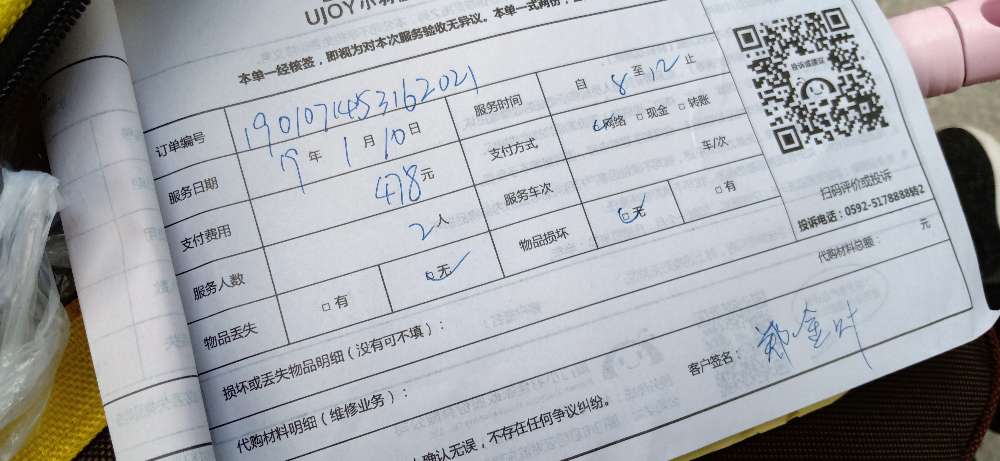 UJOY小羽
本单一经核签，即视为对本次服务验收无异议。本单一式两份，
订单编号 190107453162021 服务时间 自 8 至 12 止
服务日期 19 年 1 月 10 日 支付方式 网络 □ 现金 □ 转账
支付费用 478 元 服务车次 车/次
服务人数 2 人 物品损坏 无 □ 有
物品丢失 □ 有 无
损坏或丢失物品明细（没有可不填）：
代购材料明细（维修业务）： 代购材料总额： 元
客户签名： 郑金叶
确认无误，不存在任何争议纠纷。
投诉或建议
扫码评价或投诉
投诉电话：0592-5178888转2